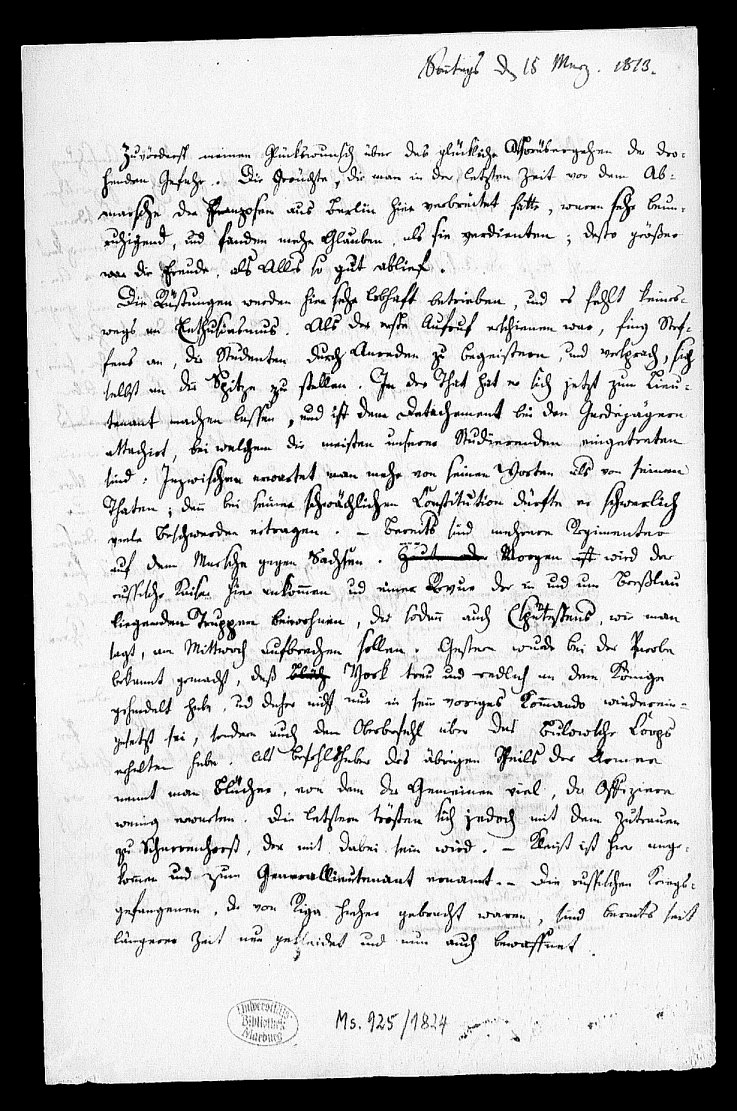 Sonntags d 15 März. 1813.
Zuvörderst meinen Glückwunsch über das glückliche Vorübergehen der dro-
henden Gefahr. Die Gerüchte, die man in der letzten Zeit vor dem Ab-
marsche der Franzosen aus Berlin hier verbreitet hatte, waren sehr beun-
ruhigend, und fanden mehr Glauben, als sie verdienten; desto größer
war die Freude, als Alles so gut ablief.
Die Rüstungen werden hier sehr lebhaft betrieben, und es fehlt keines-
wegs an Enthusiasmus. Als der erste Aufruf erschienen war, fing Stef-
fens an, die Studenten durch Anreden zu begeistern, und versprach, sich
selbst an die Spitze zu stellen. In der That hat er sich jetzt zum Lieu-
tenant machen lassen, und ist dem Detachement bei den Gardejägern
attachirt, bei welchem die meisten unserer Studierenden eingetreten
sind. Inzwischen erwartet man mehr von seinen Worten als von seinen
Thaten; denn bei seiner schwächlichen Constitution dürfte er schwerlich
viele Beschwerden ertragen. – Bereits sind mehrere Regimenter
auf dem Marsche gegen Sachsen. Morgen wird der
russische Kaiser hier ankommen und einer Revue der in und um Breßlau
liegenden Truppen beiwohnen, die sodann auch spätestens, wie man
sagt, am Mittwoch aufbrechen sollen. Gestern wurde bei der Parole
bekannt gemacht, daß York treu und redlich an dem Könige
gehandelt habe, und daher nicht nur in sein voriges Kommando wiederein-
gesetzt sei, sondern auch den Oberbefehl über das Bülowsche Corps
erhalten habe. Als Befehlshaber des übrigen Theils der Armee
nennt man Blücher, von dem die Gemeinen viel, die Offiziere
wenig erwarten. Die letztern trösten sich jedoch mit dem Zutrauen
zu Scharrenhorst, der mit dabei sein wird. – Kleist ist hier ange-
kommen und zum Generallieutenant ernannt. – Die russischen Kriegs-
gefangenen, die von Riga hieher gebracht waren, sind bereits seit
längerer Zeit neu gekleidet und nun auch bewaffnet.
Universitäts-
Bibliothek
Marburg
Ms. 925/1824